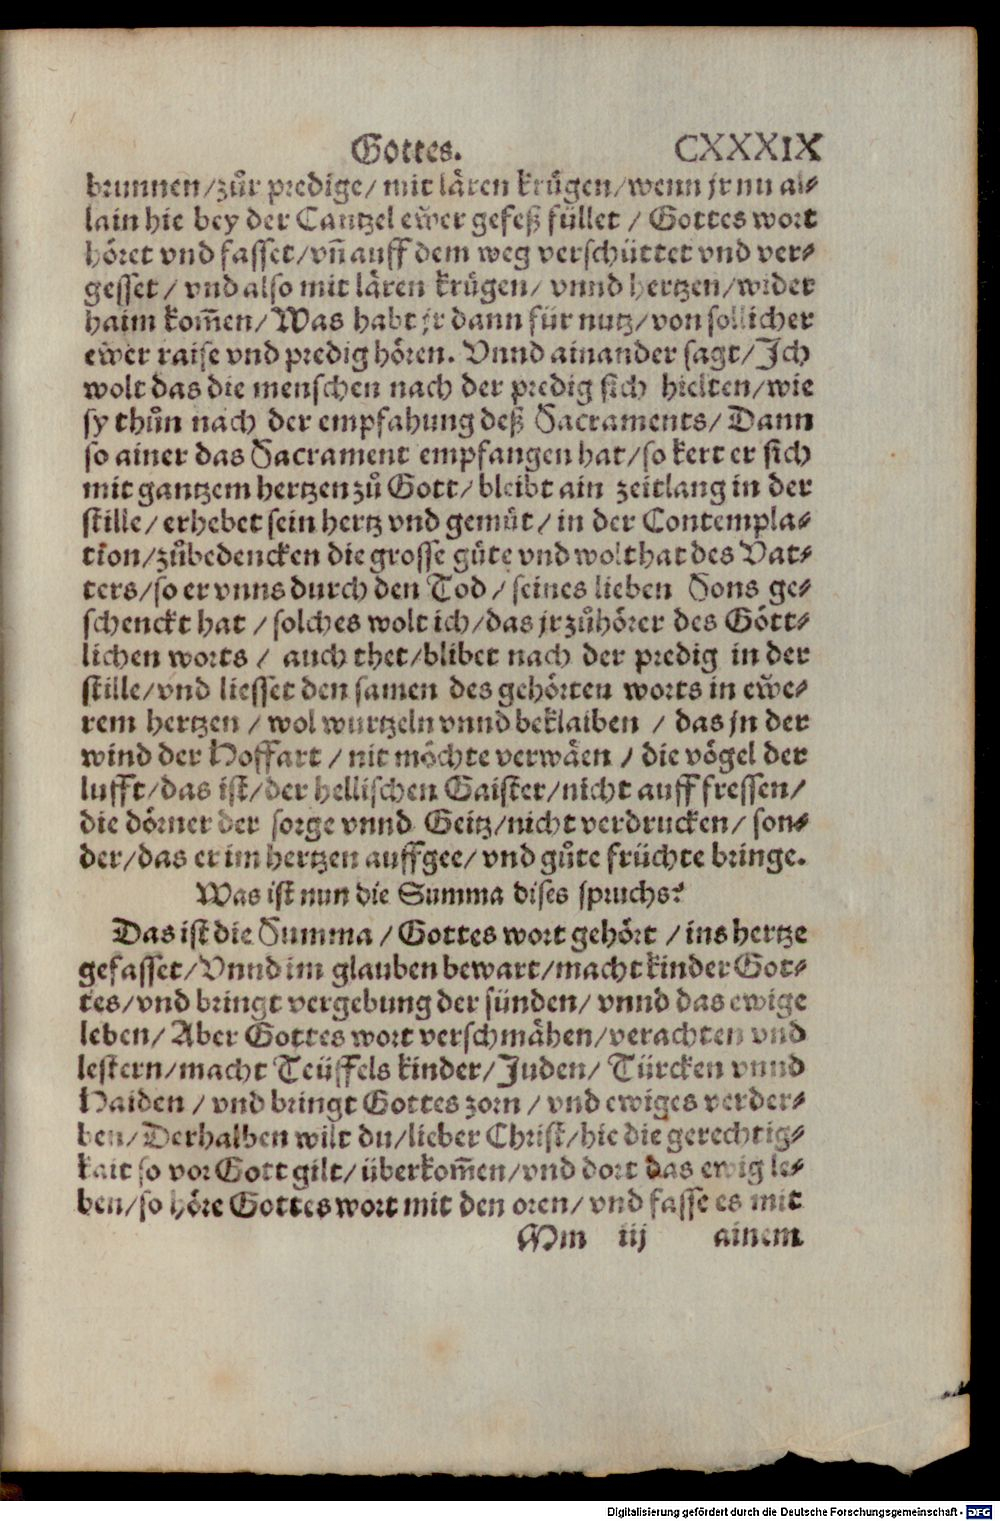 Gottes. CXXXIX
brunnen/zuͦr predige/ mit lären kruͤgen/wenn jr nu al⸗
lain hie bey der Cantzel eẅer gefeß füllet / Gottes wort
höret vnd fasset/vn̄ auff dem weg verschüttet vnd ver⸗
gesset / vnd also mit lären kruͤgen/ vnnd hertzen/wider
haim kom̄en/ Was habt jr dann für nutz/ von sollicher
eẅer raise vnd predig hören. Vnnd ainander sagt/ Ich
wolt das die menschen nach der predig sich hielten/wie
sy thuͦn nach der empfahung deß Sacraments/ Dann
so ainer das Sacrament empfangen hat/so kert er sich
mit gantzem hertzen zuͦ Gott/ bleibt ain zeitlang in der
stille/ erhebet sein hertz vnd gemuͤt/ in der Contempla⸗
tion/zuͦbedencken die grosse guͤte vnd wolthat des Vat⸗
ters/so er vnns durch den Tod / seines lieben Sons ge⸗
schenckt hat / solches wolt ich/das jr zuͦhörer des Gött⸗
lichen worts / auch thet/blibet nach der predig in der
stille/vnd liesset den samen des gehörten worts in eẅe⸗
rem hertzen / wol wurtzeln vnnd beklaiben / das jn der
wind der Hoffart / nit möchte verwäen / die vögel der
lufft/das ist/der hellischen Gaister/nicht auff fressen/
die dörner der sorge vnnd Geitz/nicht verdrucken/ son⸗
der/das er im hertzen auffgee/ vnd guͦte früchte bringe.
Was ist nun die Summa dises spruchs?
Das ist die Summa / Gottes wort gehört / ins hertze
gefasset/ Vnnd im glauben bewart/macht kinder Got⸗
tes/vnd bringt vergebung der sünden/ vnnd das ewige
leben/ Aber Gottes wort verschmähen/verachten vnd
lestern/macht Teüffels kinder/Juden/ Türcken vnnd
Haiden / vnd bringt Gottes zorn / vnd ewiges verder⸗
ben/ Derhalben wilt du/lieber Christ/hie die gerechtig⸗
kait so vor Gott gilt/ überkom̄en/vnd dort das ewig le⸗
ben/so höre Gottes wort mit den oren/ vnd fasse es mit
Mm iij ainem
Digitalisierung gefördert durch die Deutsche Forschungsgemeinschaft - DFG